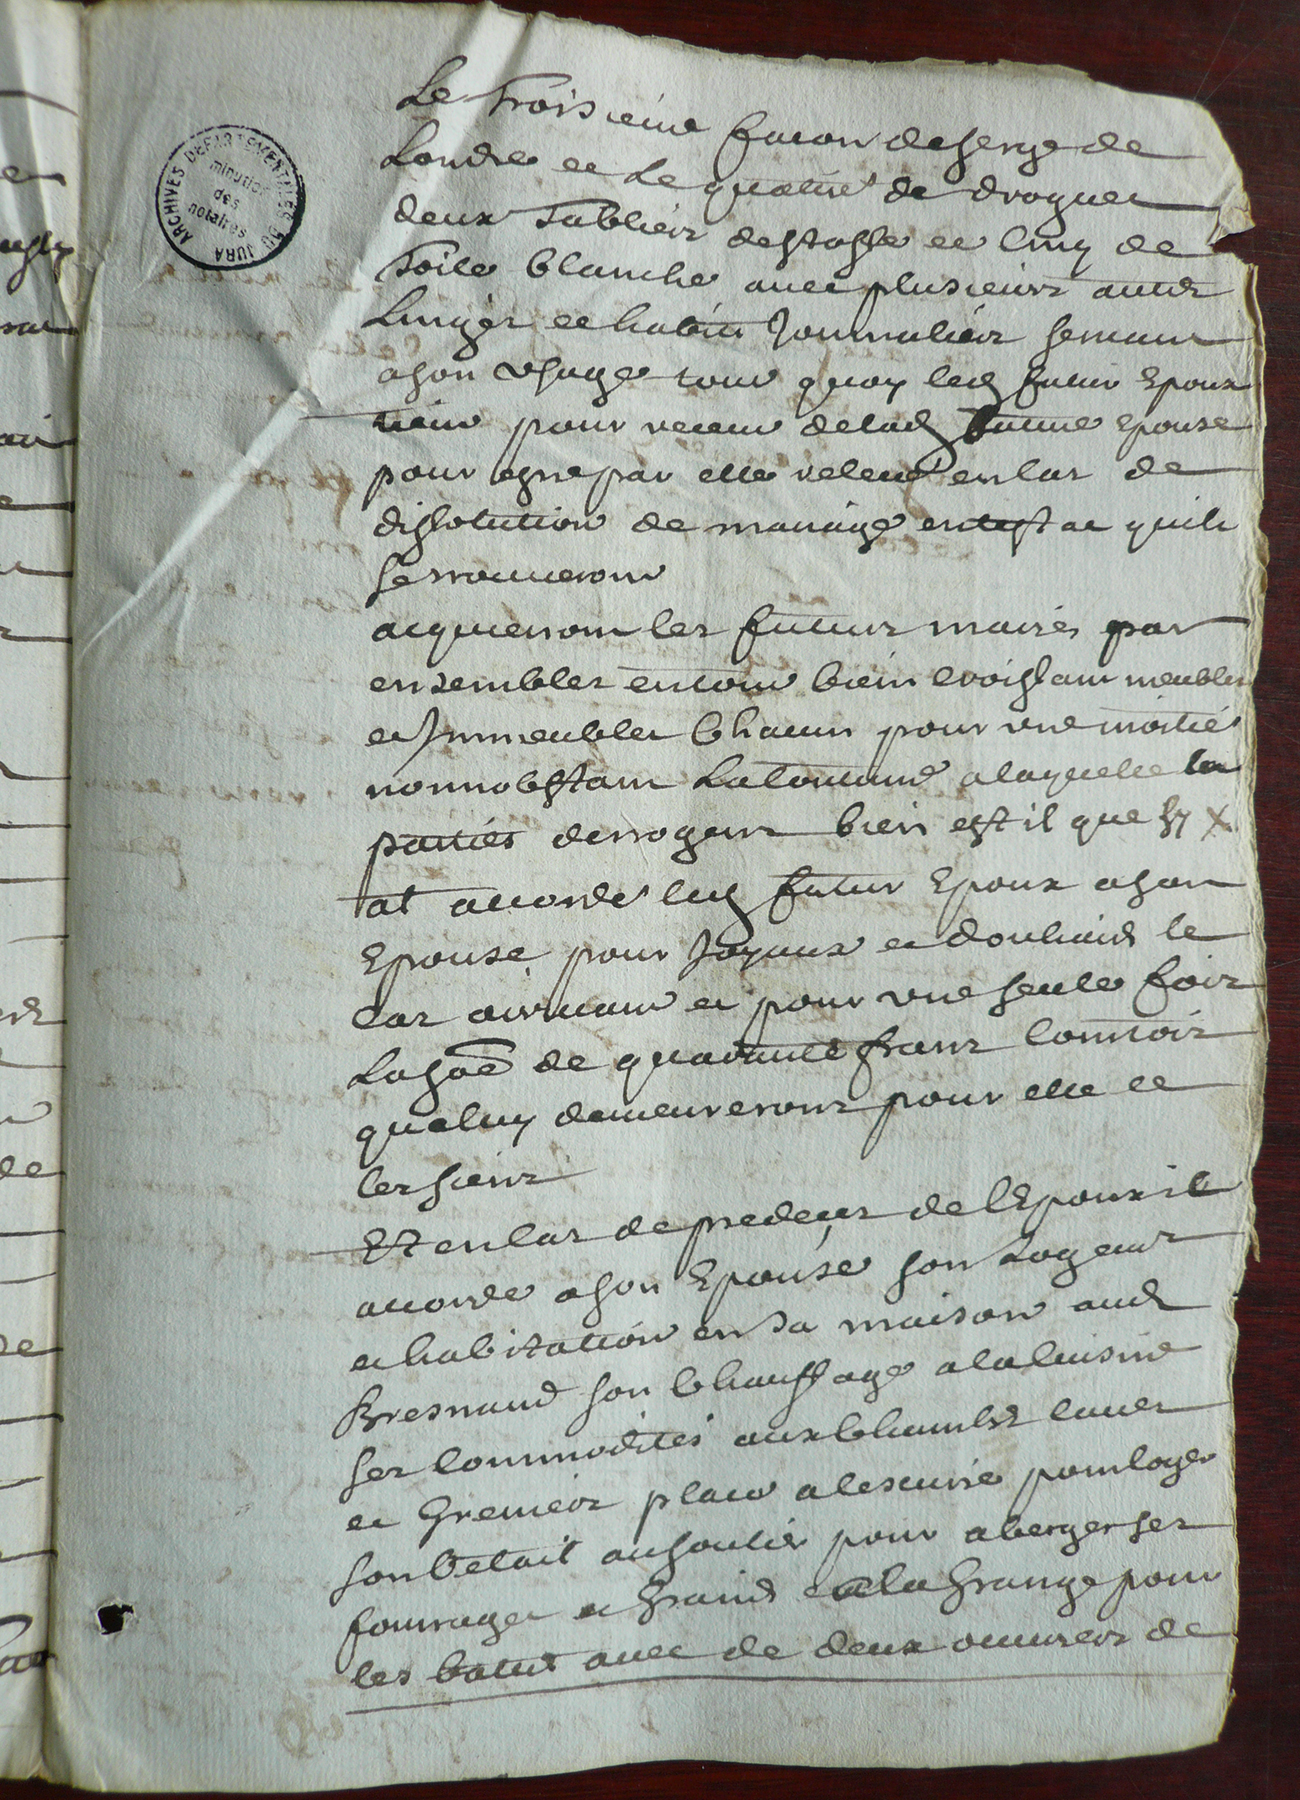 ARCHIVES DEPARTEMENTALES DU JURA
minutier
des
notaires
Le troisieme facon de serge de
Londre et Le quatrie de droguet
deux tablier destoffe et cinq de
toile blanche avec plusieurs autres
Linges et habits Journaliers servant
a son usage tout quoy led futur Epoux
tient pour receu de lad future epouse
pour estre par elle releve en cas de
dissolution de mariage en lestat quils
se trouveront
acqueront les futurs maries par
ensembles en tout biens croissant meubles
et Jmmeubles Chacun pour une moitie
nonnobstant La Coutume a laquelle les
parties derrogent bien est il que sy X
at accorde led futur Epoux a son
Epouse pour Joyaux et douhaire le
cas arrivant et pour une seule fois
La soe de quarante frans Comtois
que luy demeureront pour elle et
les siens
Et en cas de predeces de lEpoux il
accorde a son Epouse son Logement
et habitation en sa maison aud
Bresnaud son Chauffage a la Cuisine
ses Commodites aux Chambres Caves
et Greniers place a lescurie pour loger
son betail au soulier pour aberger ses
fourrages et Grains et a la Grange pour
les batre avec de deux ouvrees de